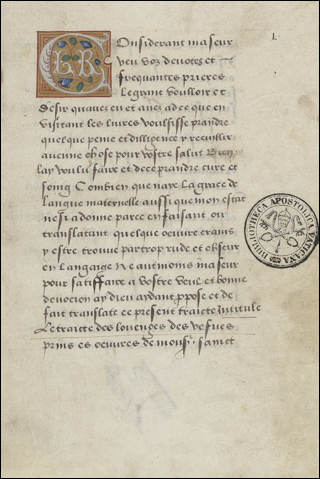 1.
Considerant ma seur
veu voz devotes et
frequantes prieres
Le grant voulloir et
desir quavez eu et avez ad ce que en
visitant les livres voulsisse prandre
quelque peine et dilligence y recueillir
aucune chose pour vostre salut Bien
lay voulu faire et de ce prandre cure et
soing Combien que naye La grace de
langue maternelle aussi que mon estat
ne si adonne par ce en faisant ou
translatant quelque oeuvre crains
y estre trouve par trop rude et obscur
en langaige Neantmoins ma seur
pour satiffaire a vostre veul et bonne
devocion ay dieu aidant propose et de
fait translate ce present traicte Intitule
Le traicte des louenges des vefves
prins es oeuvres de monsr. sainct
BIBLIOTHECA APOSTOLICA VATICANA